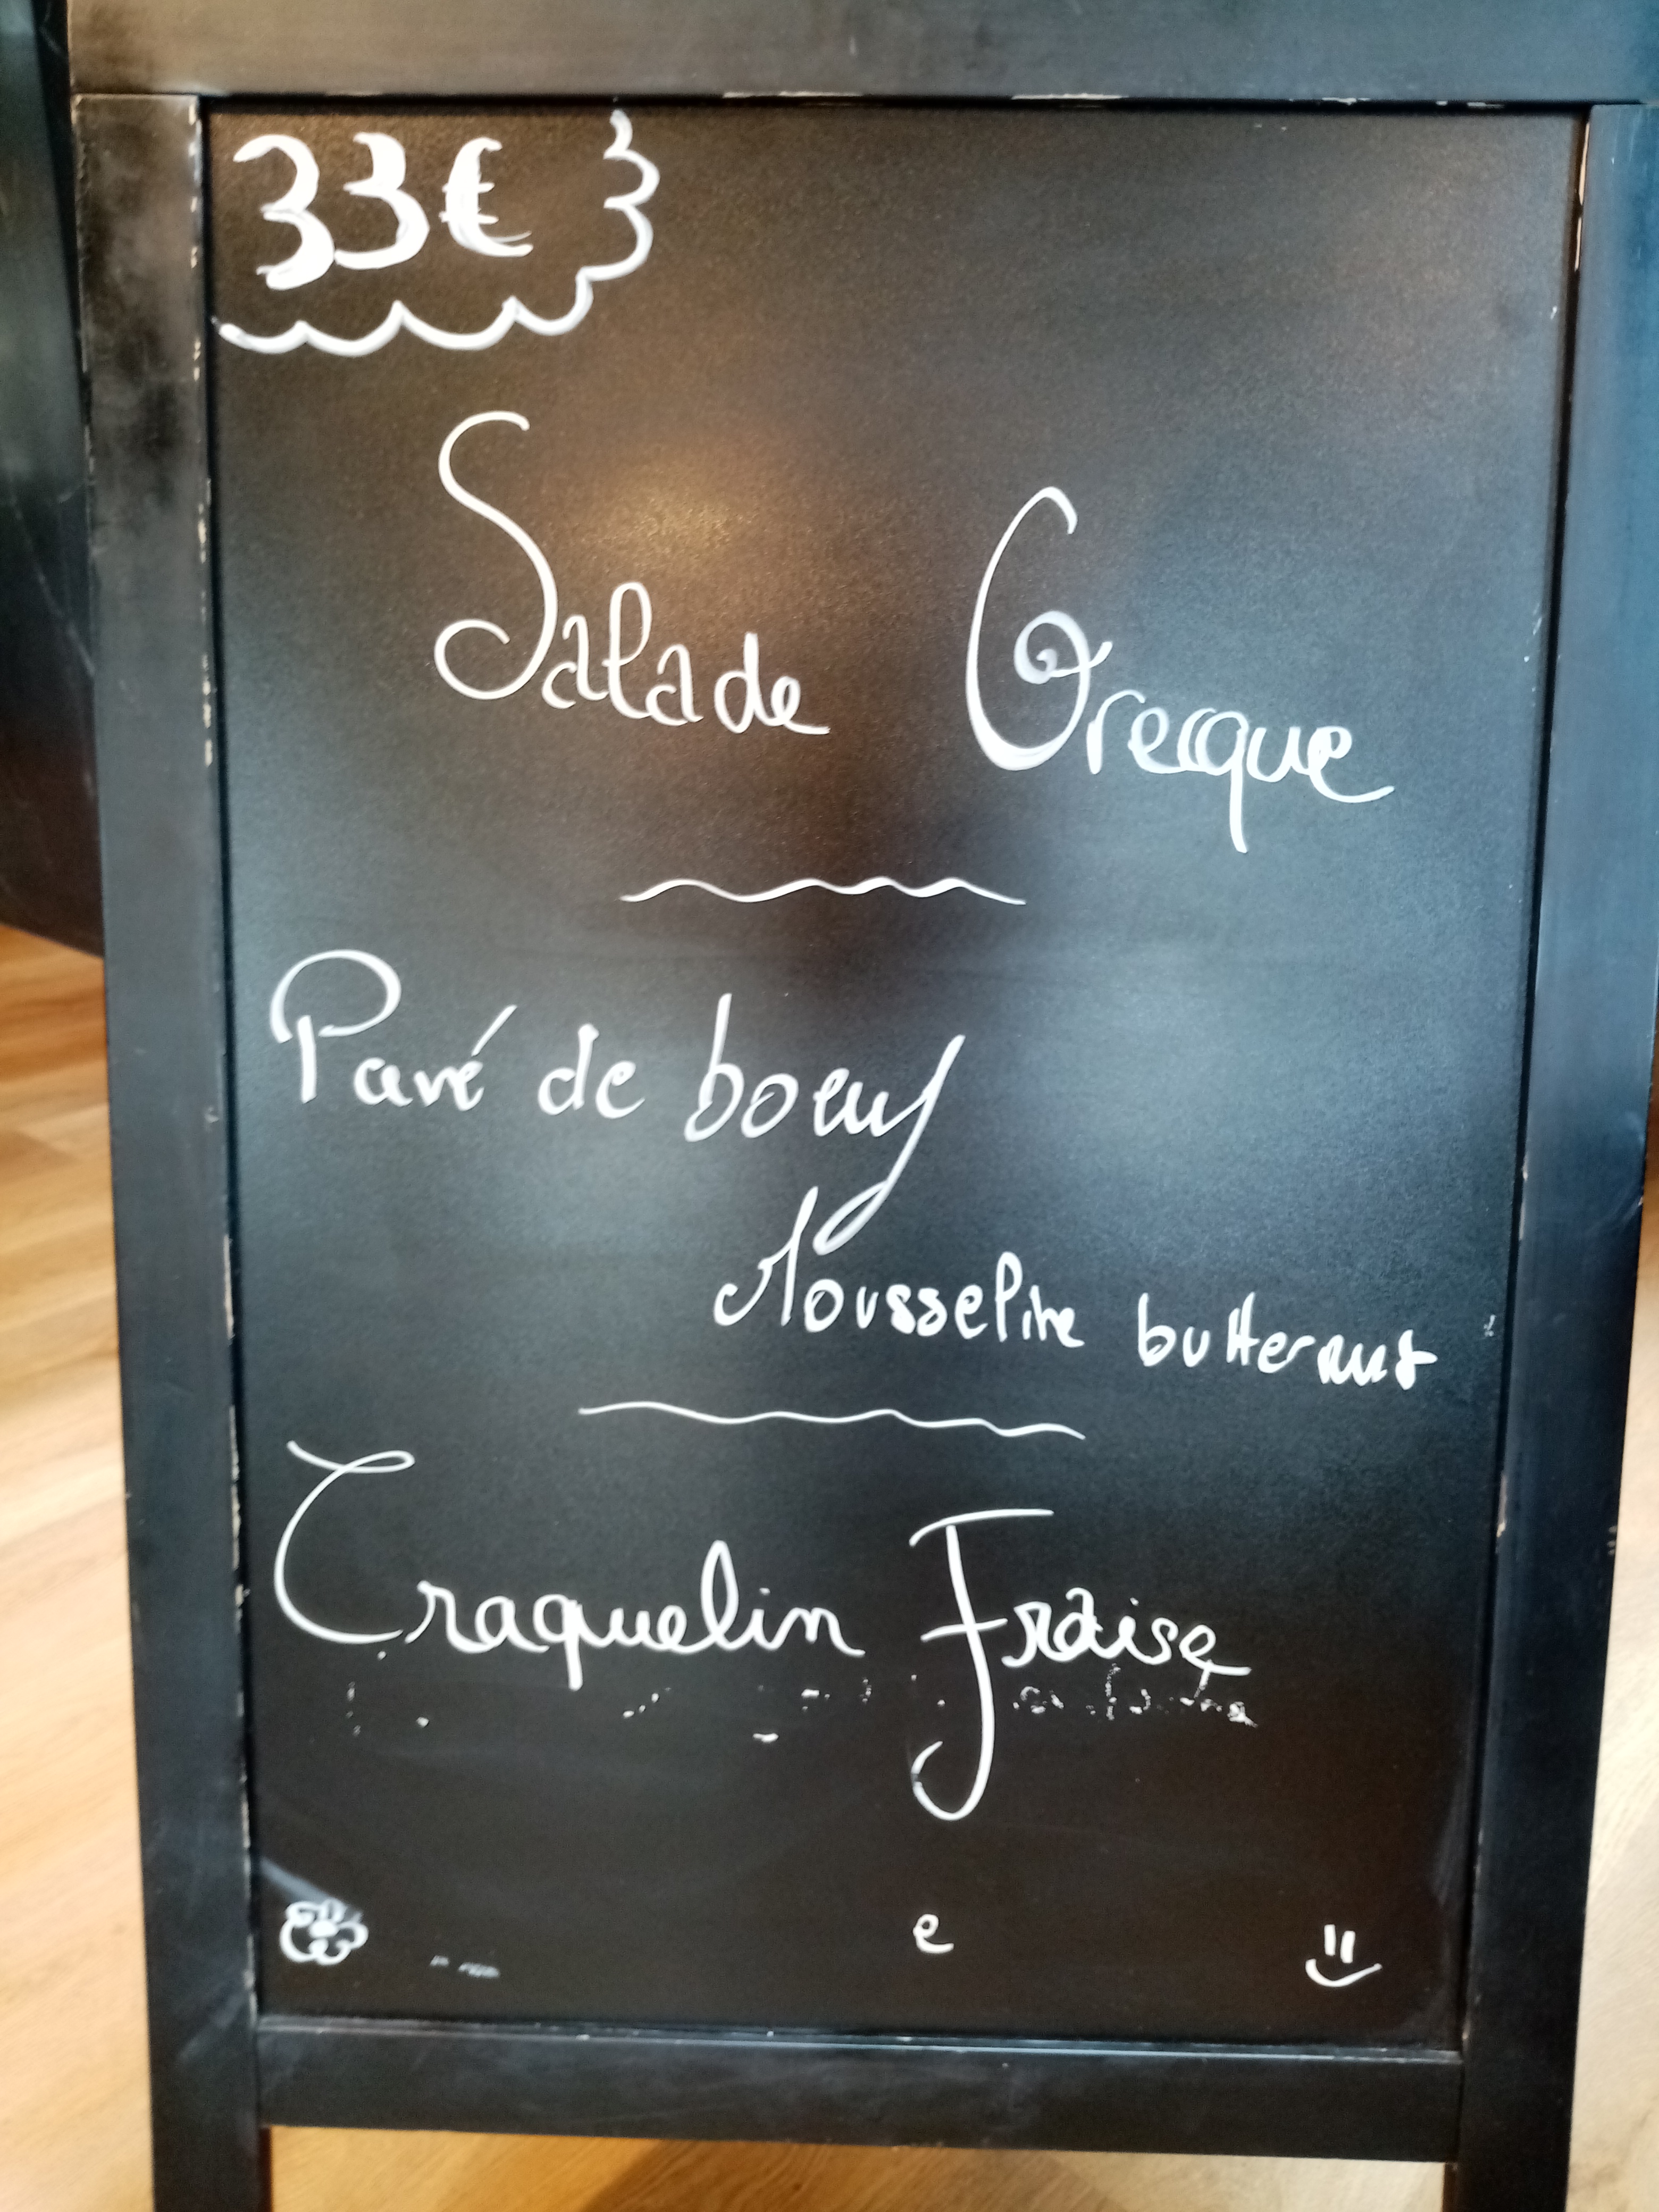 33€
Salade Grecque
Pavé de boeuf
Mousseline butternut
Craquelin Fraise
e